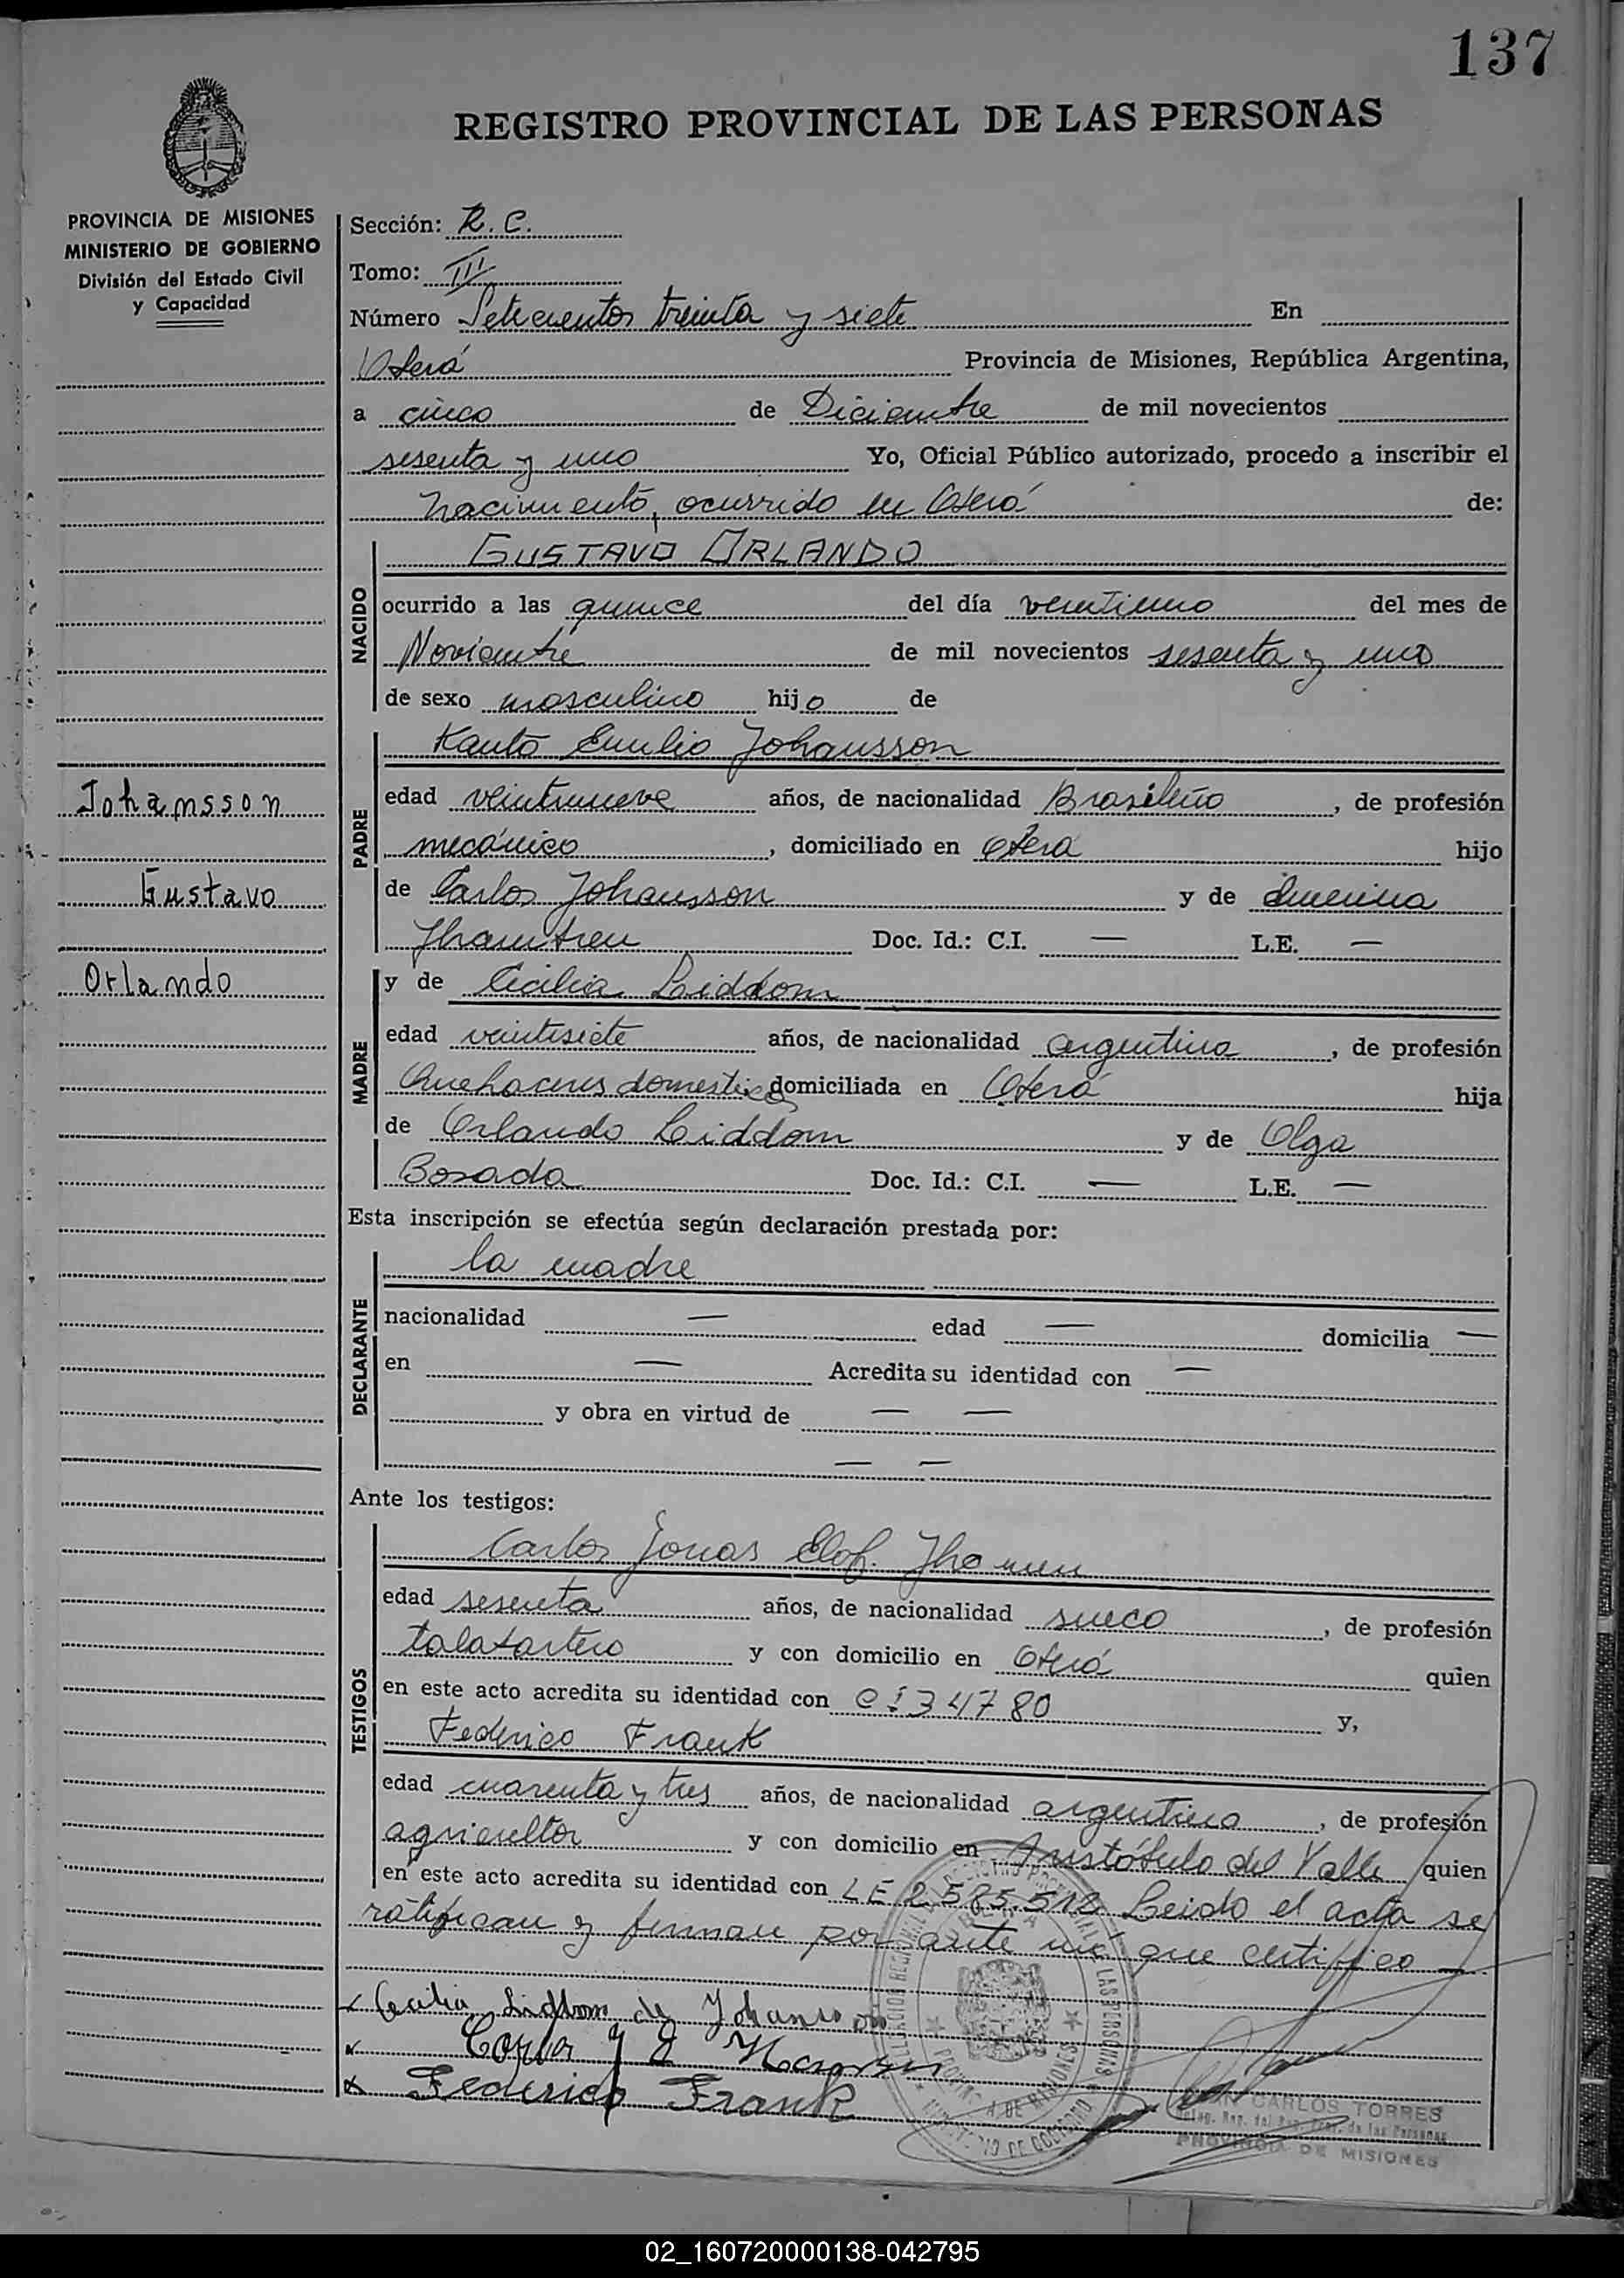 137
REGISTRO PROVINCIAL DE LAS PERSONAS
PROVINCIA DE MISIONES
MINISTERIO DE GOBIERNO
División del Estado Civil
y Capacidad
Sección: R. C.
Tomo: III
Número Setecientos treinta y siete En
Oberá Provincia de Misiones, República Argentina,
a cinco de Diciembre de mil novecientos
sesenta y uno Yo, Oficial Público autorizado, procedo a inscribir el
nacimiento, ocurrido en Oberá de:
NACIDO
GUSTAVO ORLANDO
ocurrido a las quince del día veintiuno del mes de
Noviembre de mil novecientos sesenta y uno
de sexo masculino hijo de
PADRE
Emilio Johansson
edad veintinueve años, de nacionalidad Brasileño, de profesión
mecánico, domiciliado en Oberá hijo
de Carlos Johansson y de
Doc. Id.: C.I. — L.E. —
Johansson
Gustavo
Orlando
MADRE
y de Cecilia Liddom
edad veintisiete años, de nacionalidad argentina, de profesión
Quehaceres domesticos domiciliada en Oberá hija
de Orlando Liddom y de Olga
Bosada Doc. Id.: C.I. — L.E. —
Esta inscripción se efectúa según declaración prestada por:
DECLARANTE
la madre
nacionalidad — edad — domicilia —
en — Acredita su identidad con —
y obra en virtud de — —
— —
Ante los testigos:
TESTIGOS
Carlos Jonas Elof.
edad sesenta años, de nacionalidad sueco, de profesión
talabartero y con domicilio en Oberá quien
en este acto acredita su identidad con CI 34780 y,
Federico Frank
edad cuarenta y tres años, de nacionalidad argentino, de profesión
agricultor y con domicilio en Aristóbulo del Valle quien
en este acto acredita su identidad con LE 2.585.512 Leido el acta se
ratifican y firman por ante mí que certifico —
Cecilia Liddom de Johansson
Federico Frank
CARLOS TORRES
PROVINCIA DE MISIONES
02_160720000138-042795